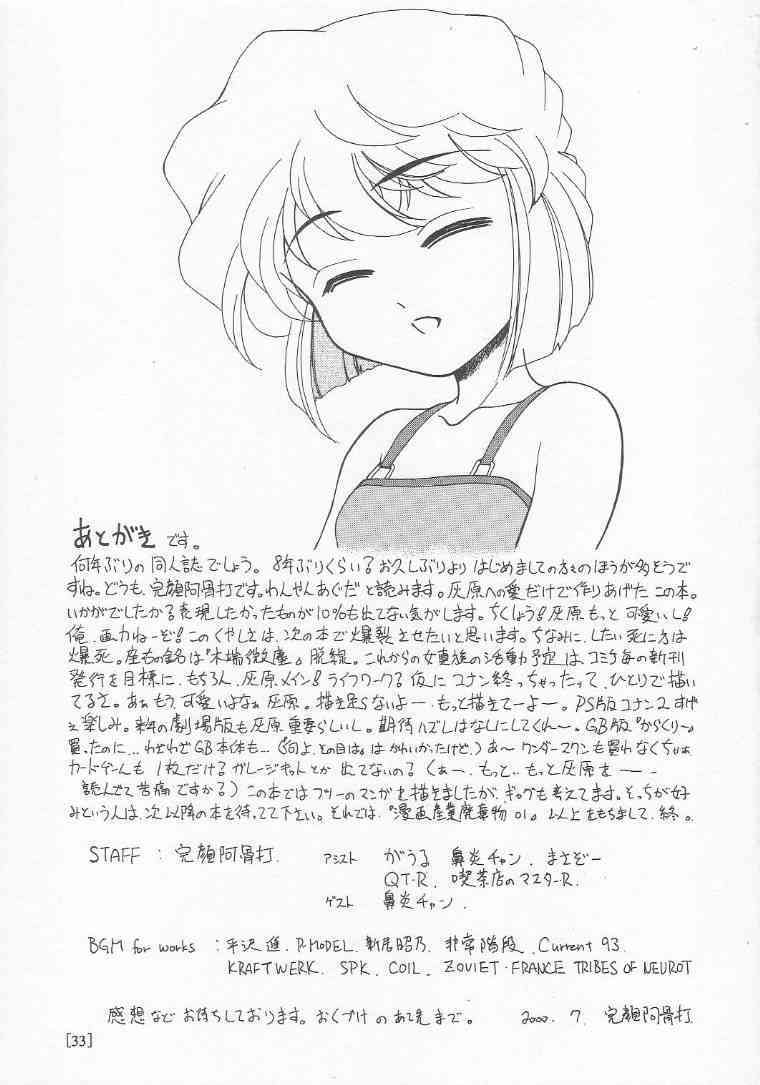 あとがき です。
何年ぶりの同人誌でしょう。8年ぶりくらい?お久しぶりより はじめましての方々のほうが多そうで
すね。どうも、完顔阿骨打です。わんやんあぐだと読みます。灰原への愛だけで作りあげた この本。
いかがでしたか?表現したかったものが10%も出てない気がします。ちくしょう!灰原もっと可愛いし!
俺、画力ねーぞ!このくやしさは、次の本で爆裂させたいと思います。ちなみに、したい死に方は
爆死。座右の銘は『木端微塵』。脱線。これからの女直族の活動予定は、コミケ毎の新刊
発行を目標に、もちろん、灰原メイン!ライフワーク?仮にコナン終っちゃったって、ひとりで描い
てるさ。あぁもう、可愛いよなぁ灰原。描き足らないよー、もっと描きてーよー。PS版コナン2 すげ
ぇ楽しみ。来年の劇場版も灰原重要らしいし。期待ハズレはなしにしてくれ〜。GB版『からくり〜』
買ったのに…わざわざGB本体も…(『何よ、その目は』は かわいかったけど。) あ〜 ワンダースワンも買わなくちゃぁ
カードゲームも 1枚だけ?ガレージキットとか 出てないの?くぁー、もっと、もっと灰原をーー
読んでて苦痛ですか?) この本ではフツーのマンガを描きましたが、ギャグも考えてます。そっちが好
みという人は、次以降の本を待ってて下さい。それでは、『漫画産業廃棄物01』以上をもちまして、終。
STAFF : 完顔阿骨打. アシスト がうる 鼻炎チャン. まさぞー
QT-R. 喫茶店のマスターR.
ゲスト 鼻炎チャン.
BGM for works : 平沢 進. P-MODEL. 新居昭乃. 非常階段. Current 93.
KRAFTWERK. SPK. COIL. ZOVIET・FRANCE TRIBES OF NEUROT
感想など お待ちしております。おくづけの あて先まで。 2000. 7. 完顔阿骨打.
[33]